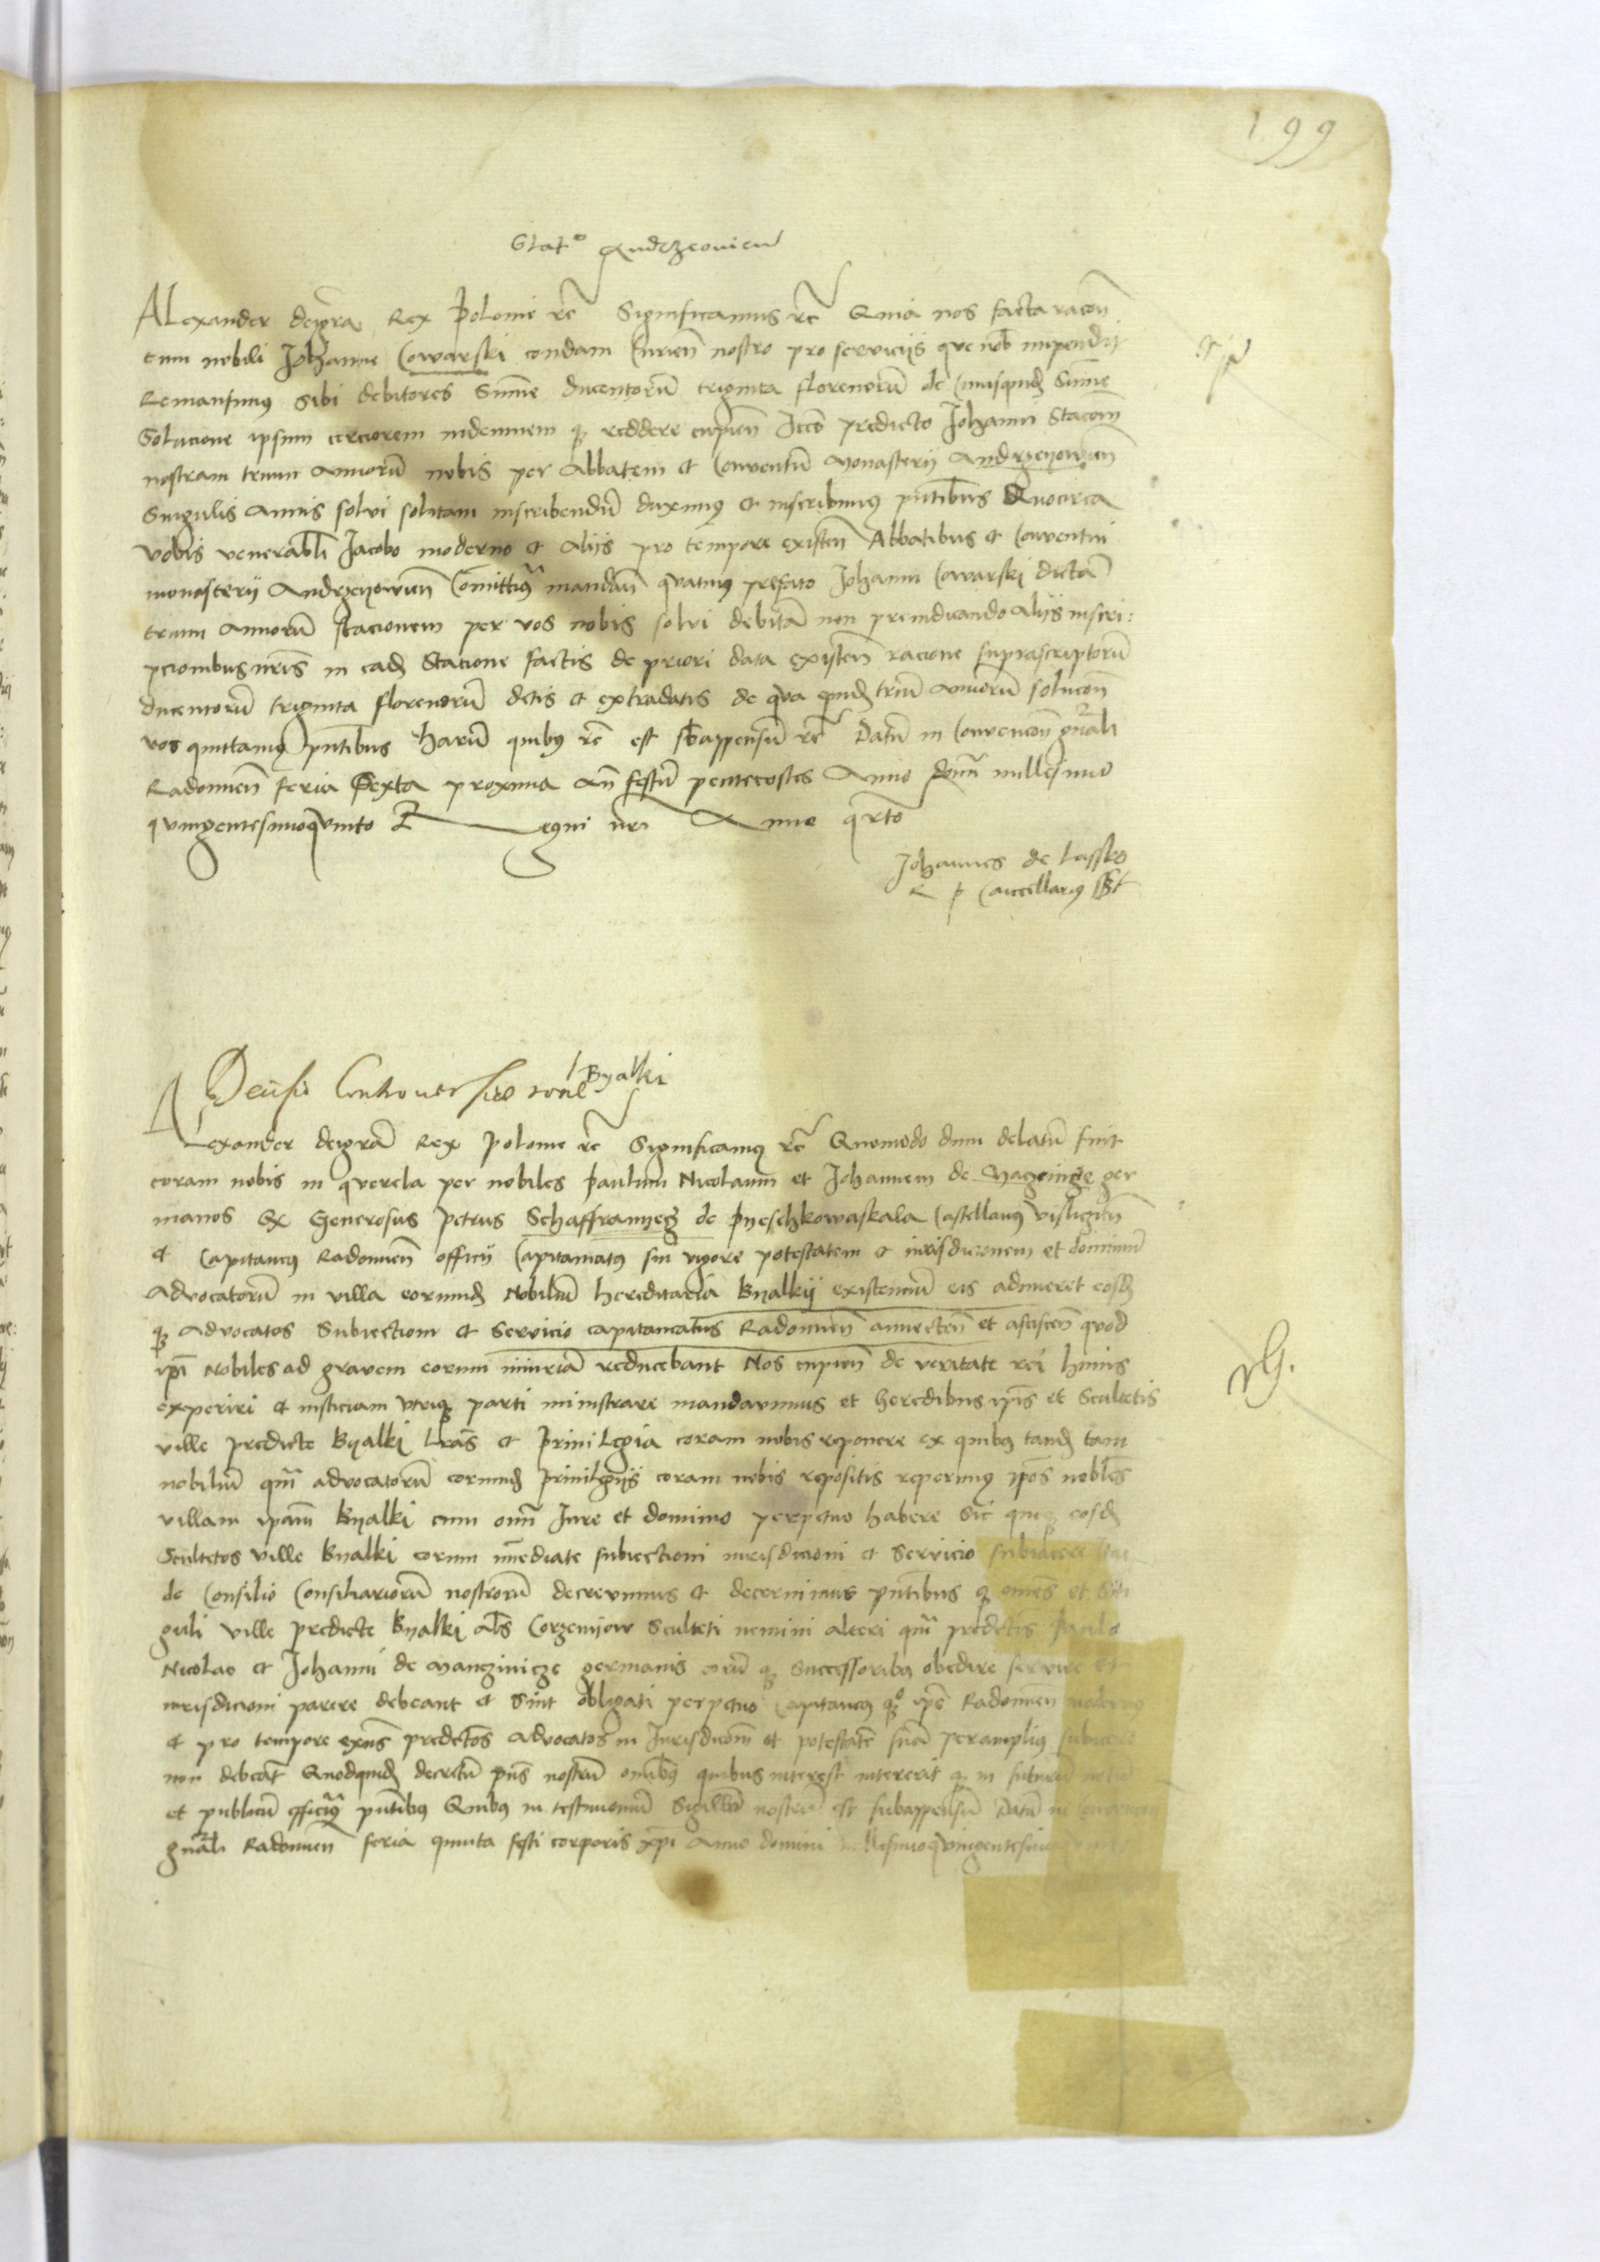 199
Stat° Andrzeovien
Alexander deigra Rex Polonie rc Significamus rc Quia nos facta racon
cum nobili Johanne Cowarski condam Curien nostro pro serviciis que nob impendit
Remansimus sibi debitores Summe ducentorum triginta florenorum de Cuiusquid Summe
Solucione ipsum cerciorem indemnem q reddere cupien Icco predicto Johanni Stacom
nostram trium Annorum nobis per Abbatem et Conventum Monasterii Andrzeyowien
Singulis Annis solvi solitam inscribendum duximus et inscribimus pntibus Quocirca
vobis venerabili Jacobo moderno et Aliis pro tempore existen Abbatibus et Conventui
monasterii Andrzeyowien Comittimus mandan quatinus prefato Johanni Cowarski dictam
trium Annorum stacionem per vos nobis solvi debitam non preiudicando Aliis inscri:
pcionibus nris in eadem Stacione factis de priori data existen racione suprascriptorum
ducentorum triginta florenorum detis et extradatis de qua quidem trium Annorum solucon
vos quittamus pntibus harum quibus rc est subappensum rc Datum in Convencon gnrali
Radomien feria Sexta proxima an festum pentecostes Anno domi millesimo
quingentesimoquinto Regni nri Anno qrto
Johannes de Lassko
R P Cancellarius sst
Decisio Controversiae ville Byalki
Alexander deigra Rex Polonie rc Significamus rc Quomodo dum delatum fuit
coram nobis in querela per nobiles Paulum Nicolaum et Johannem de Magcinge ger
manos Qr Generosus Petrus Schaffranyeg de Pyeschkowaskala Castellanus vislicien
et Capitaneus Radomien officii Capitaneatus sui vigore potestatem et iurisdicionem et dominium
Advocatorum in villa eorundem Nobilium hereditaria Byalkij existencium eis adimeret eosdem
q Advocatos Subiectioni et Servicio capitaneatus Radomien annecten et asciscen quod
ipi Nobiles ad gravem eorum iniuriam reducebant Nos cupien de veritate rei huius
experiri et iusticiam utrique parti ministrare mandavimus et heredibus ipis et Scultetis
ville predicte Byalki Lras et Privilegia coram nobis reponere ex quibus tandem tam
nobilium qum advocatorum eorundem Privilegiis coram nobis repositis reperimus ipos nobles
villam ipam Byalki cum omni Jure et dominio perpetuo habere Sic quoque eosdem
Scultetos ville Byalki eorum immediate subiectioni iurisdicioni et Servicio subiacere
de Consilio Consiliariorum nostrorum decrevimus et decernimus pntibus q omnes et Sin
guli ville predicte Byalki als Corzeniow Sculteti nemini alteri qum predictis Paulo
Nicolao et Johanni de Manczinicze germanis eorum q Successoribus obedire servire et
iurisdicioni parere debeant et Sint obligati perpetuo Capitaneus q ipe Radomien modernus
et pro tempore exns predictos Advocatos in Jurisdicionem et potestatem suam peramplius subicere
non debeat Quodquidem decretum pns nostrum omnibus quibus interest intererit q in futurum notum
et publicum efficimus pntibus Quibus in testimonium Sigillum nostrum est subappensum Datum in Convencon
gnrali Radomien feria quinta festi corporis xpi Anno domini millesimoquingentesimo